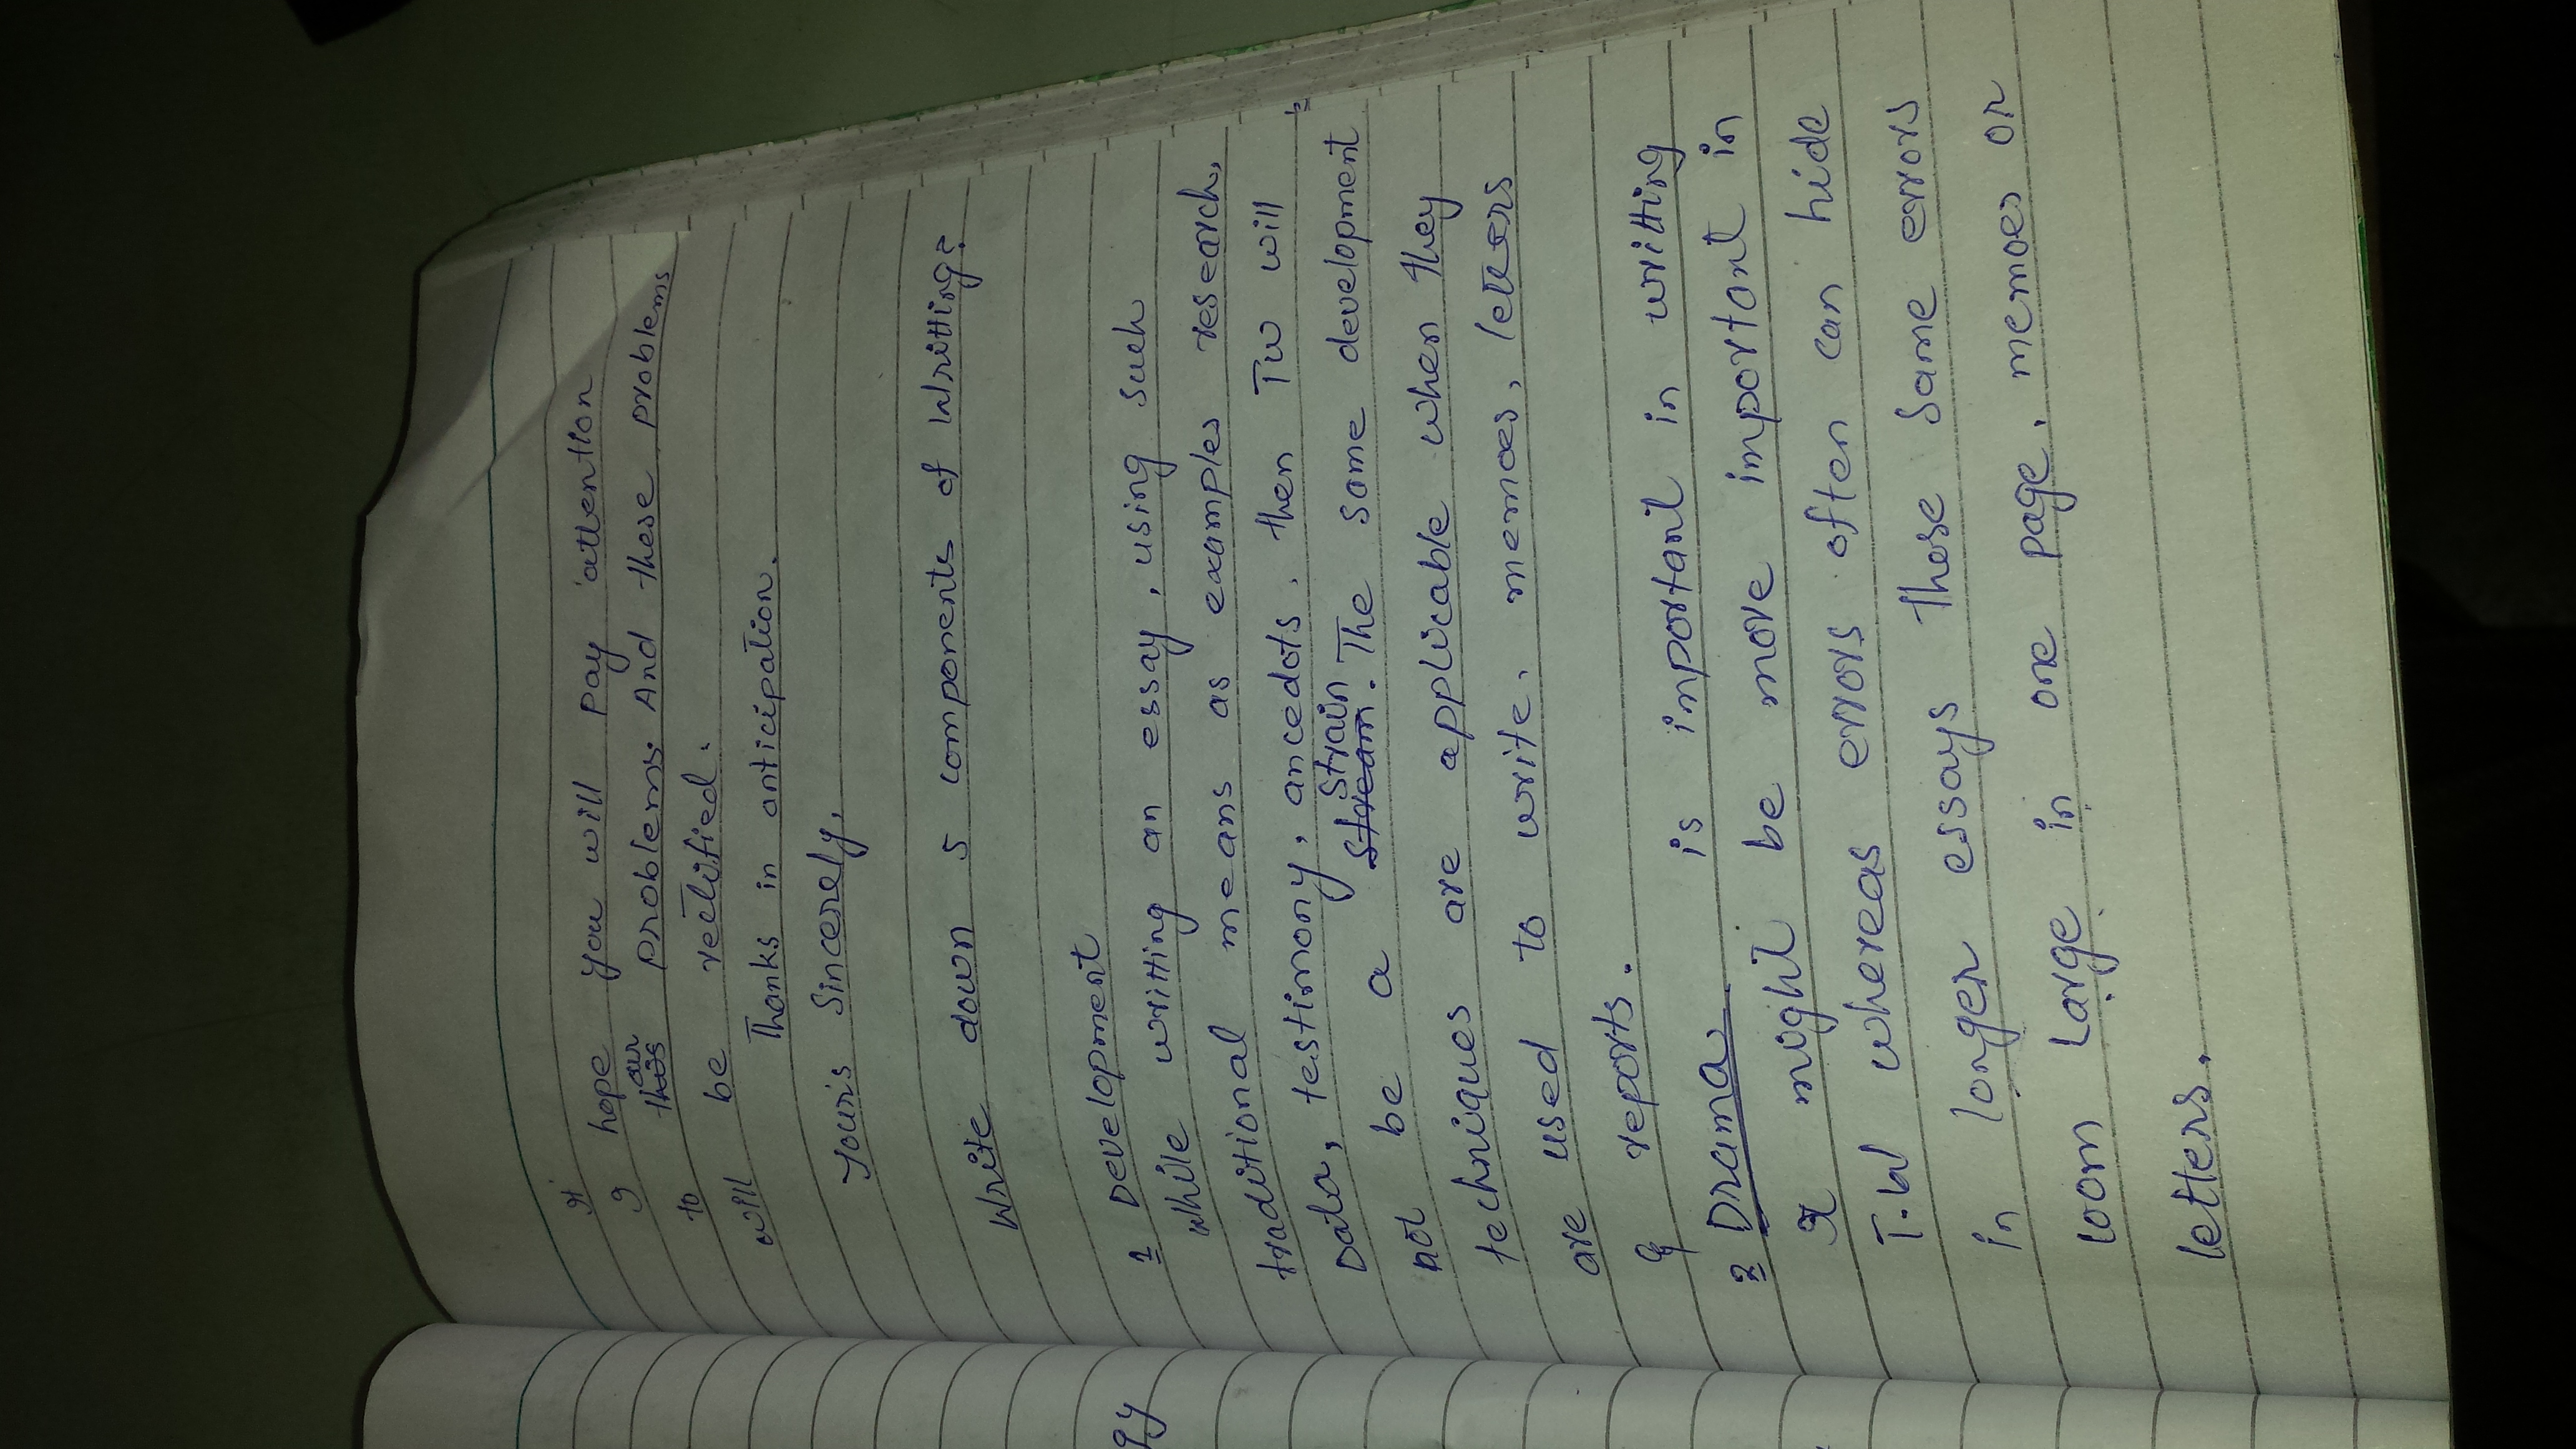 I hope you will pay attention
to our problems. And these problems
will be rectified.
Thanks in anticipation.
Your's Sincerely,
Write down 5 components of Writting?
1 Development
while writting an essay, using such
traditional means as examples research,
Data, testimony, ancedots, then TW will
not be a stream strain. The same development
techniques are applicable when they
are used to write, memoes, letters
& reports.
2 Drama is important in writting
It might be more important in
T.W whereas errors often can hide
in longer essays those same errors
loom Large in one page, memoes or
letters.
gy